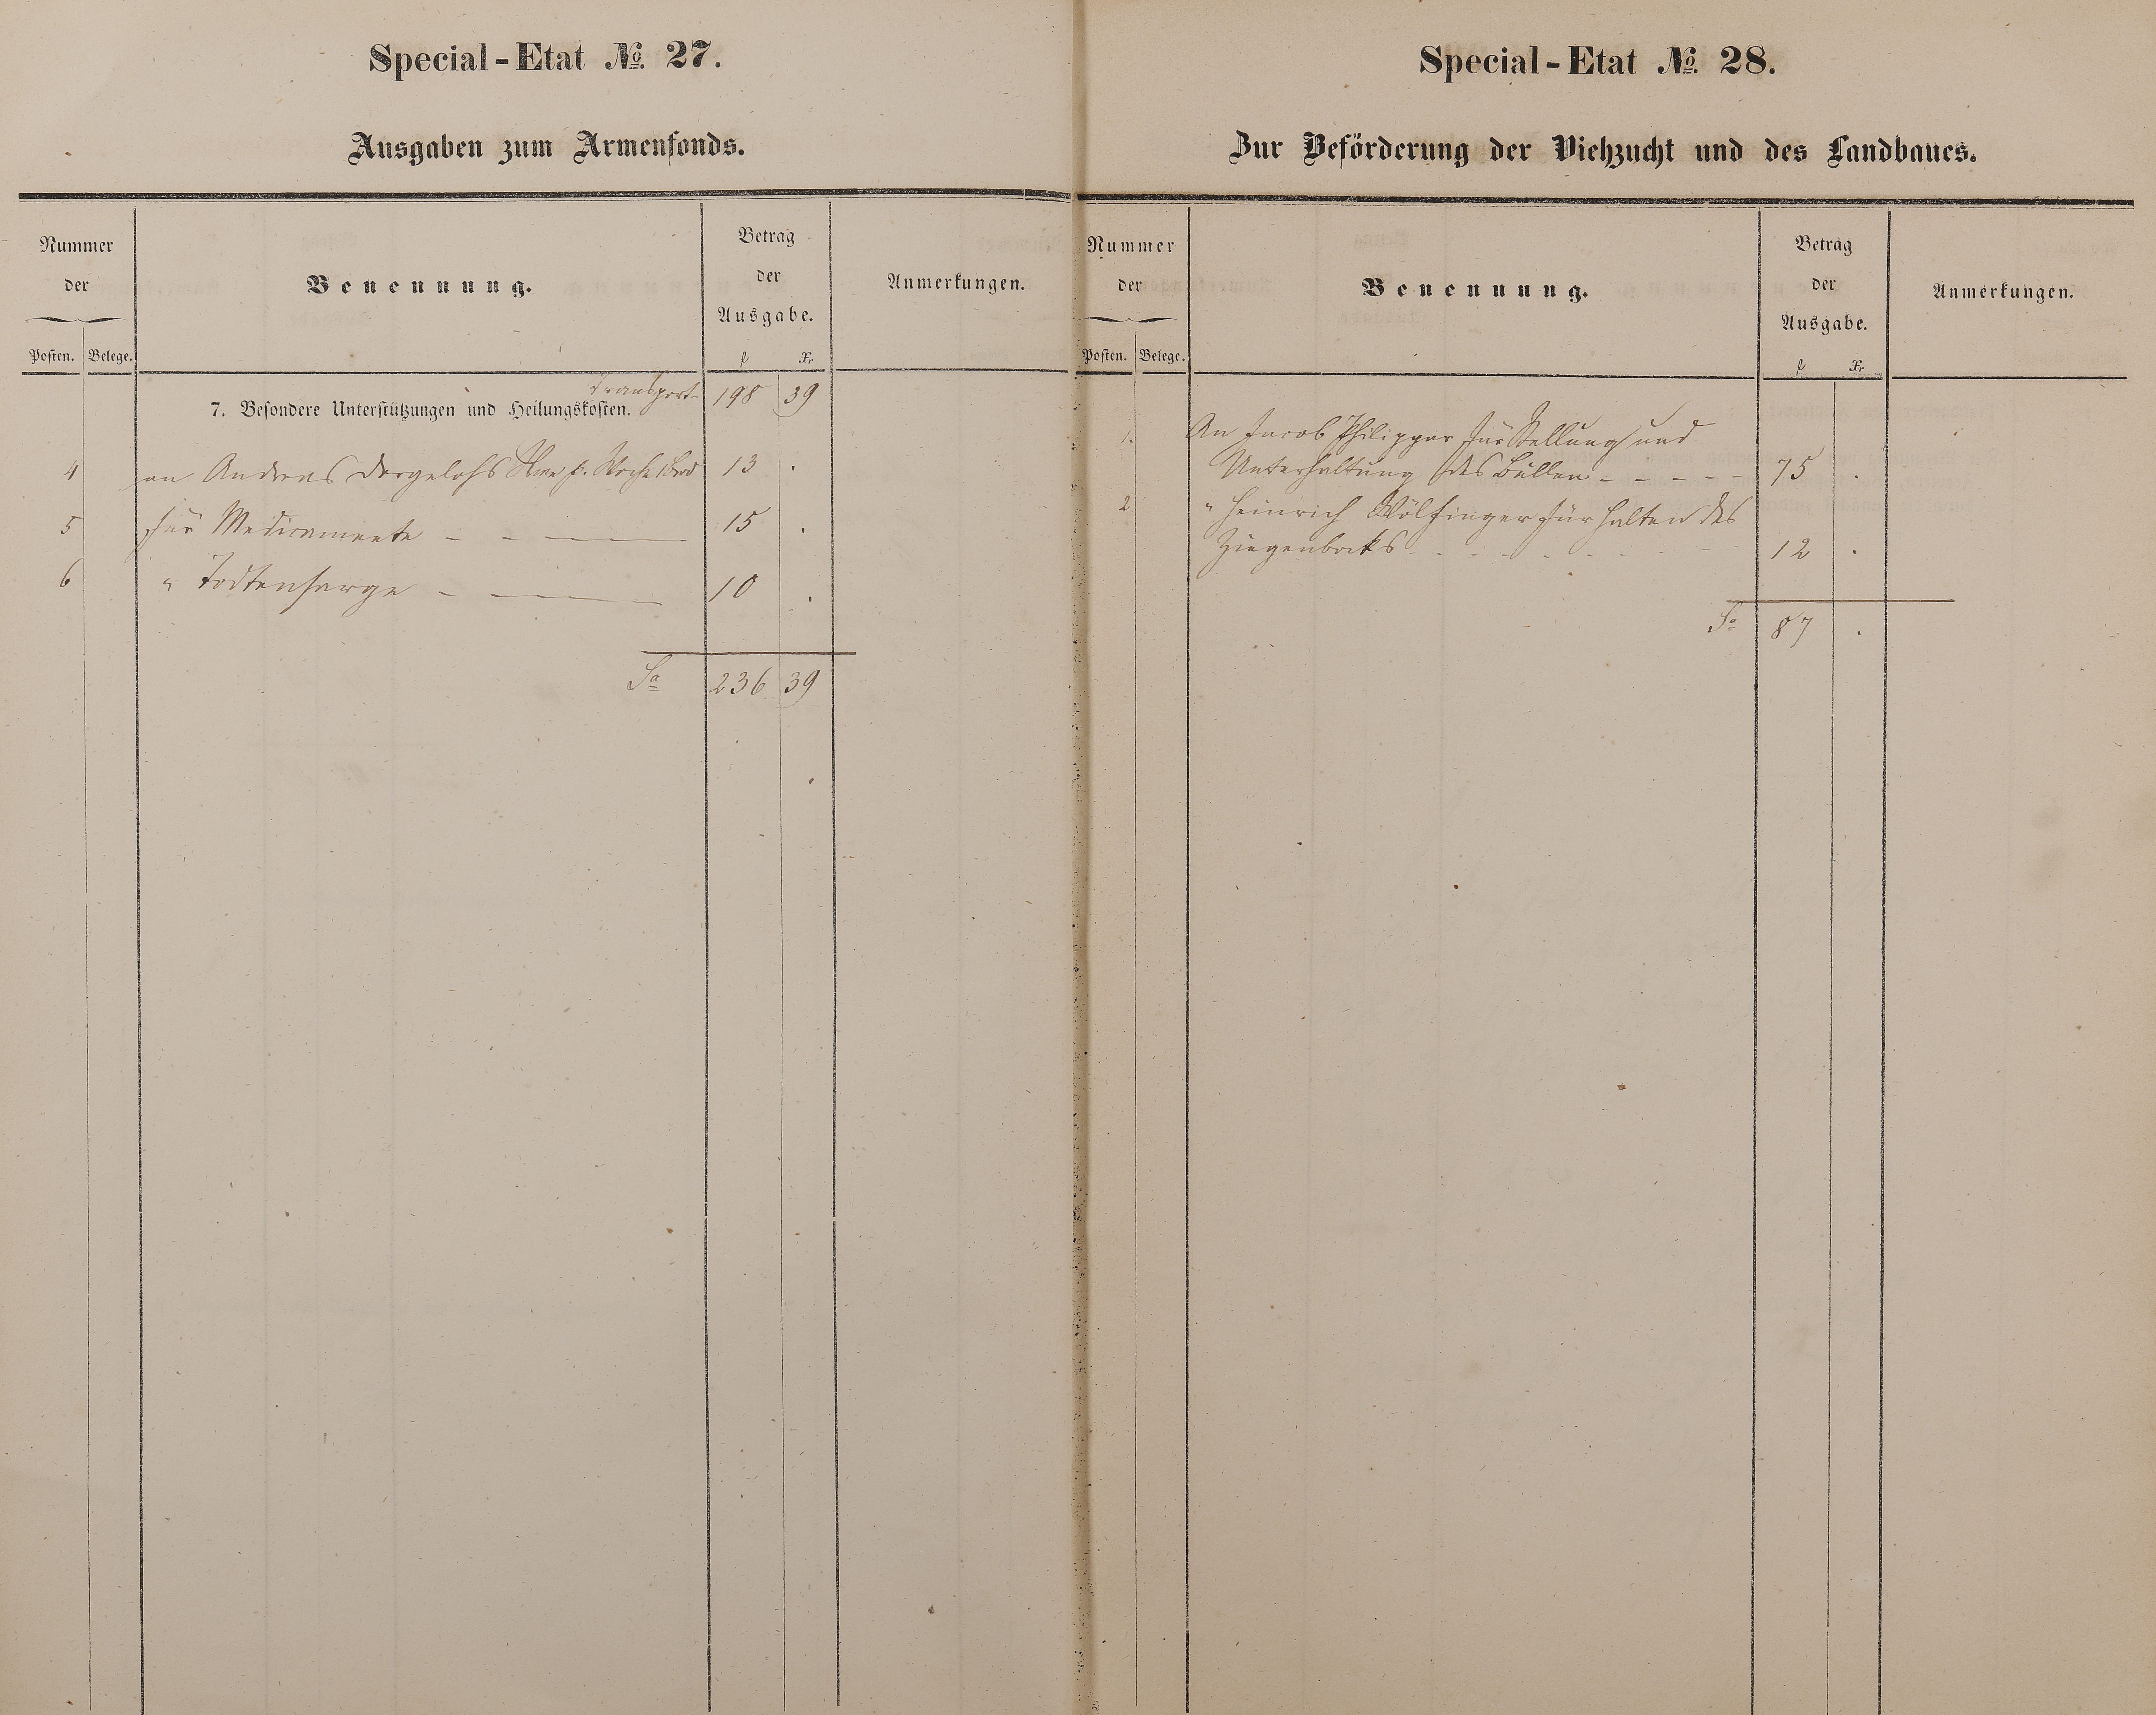 Special-Etat № 27.
Ausgaben zum Armenfonds.
Nummer
der
Posten. Belege.
Benennung.
Betrag
der
Ausgabe.
f Xr
Anmerkungen.
Transport 198 39
7. Besondere Unterstützungen und Heilungskosten.
4 an Andreas Dergelohs p. Woche 13 .
5 für Medicamente - - — 15 .
6 " Todtensärge - — 10 .
Sa 236 39
Special-Etat № 28.
Zur Beförderung der Viehzucht und des Landbaues.
Nummer
der
Posten. Belege.
Benennung.
Betrag
der
Ausgabe.
f Xr
Anmerkungen.
1. An Jacob Philippar für Stellung und
Unterhaltung des Bullen - - - - - 75 .
2 " Heinrich Wölfinger für Halten des
Ziegenbocks - - - - - - - - 12 .
Sa 87 .